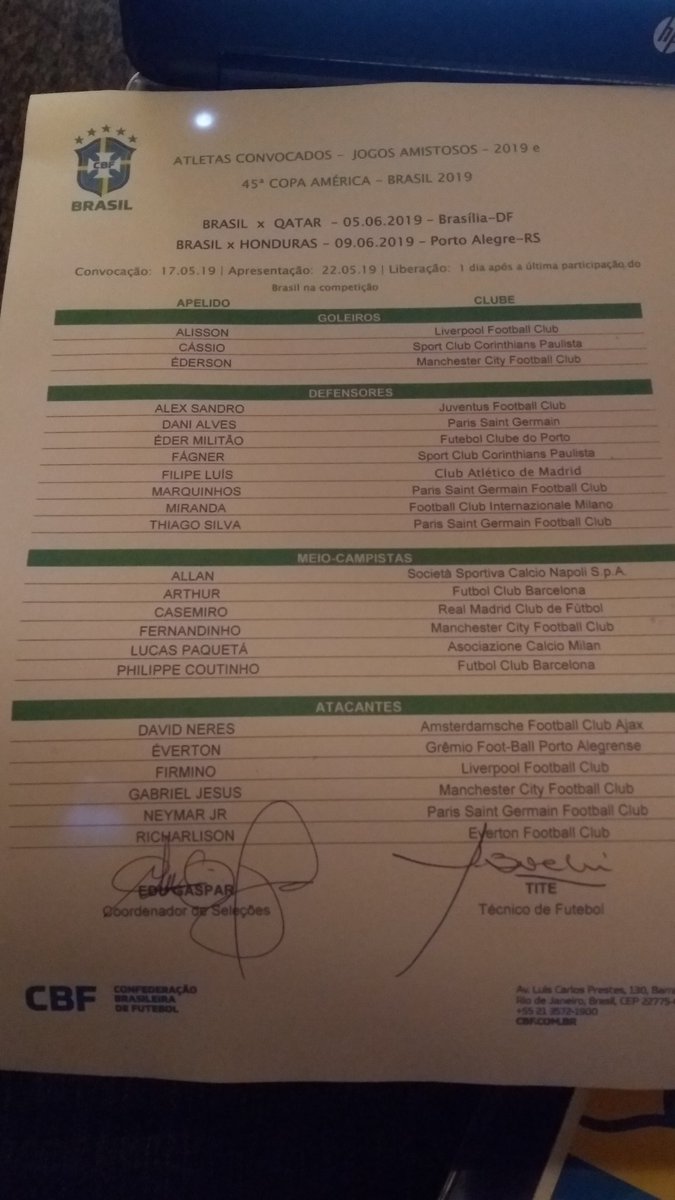 hp
CBF
BRASIL
ATLETAS CONVOCADOS – JOGOS AMISTOSOS – 2019 e
45ª COPA AMÉRICA – BRASIL 2019
BRASIL x QATAR – 05.06.2019 – Brasília-DF
BRASIL x HONDURAS – 09.06.2019 – Porto Alegre-RS
Convocação: 17.05.19 | Apresentação: 22.05.19 | Liberação: 1 dia após a última participação do
Brasil na competição
APELIDO CLUBE
GOLEIROS
ALISSON Liverpool Football Club
CÁSSIO Sport Club Corinthians Paulista
ÉDERSON Manchester City Football Club
DEFENSORES
ALEX SANDRO Juventus Football Club
DANI ALVES Paris Saint Germain
ÉDER MILITÃO Futebol Clube do Porto
FÁGNER Sport Club Corinthians Paulista
FILIPE LUÍS Club Atlético de Madrid
MARQUINHOS Paris Saint Germain Football Club
MIRANDA Football Club Internazionale Milano
THIAGO SILVA Paris Saint Germain Football Club
MEIO-CAMPISTAS
ALLAN Società Sportiva Calcio Napoli S.p.A.
ARTHUR Futbol Club Barcelona
CASEMIRO Real Madrid Club de Fútbol
FERNANDINHO Manchester City Football Club
LUCAS PAQUETÁ Asociazione Calcio Milan
PHILIPPE COUTINHO Futbol Club Barcelona
ATACANTES
DAVID NERES Amsterdamsche Football Club Ajax
ÉVERTON Grêmio Foot-Ball Porto Alegrense
FIRMINO Liverpool Football Club
GABRIEL JESUS Manchester City Football Club
NEYMAR JR Paris Saint Germain Football Club
RICHARLISON Everton Football Club
EDU GASPAR TITE
Coordenador de Seleções Técnico de Futebol
CBF CONFEDERAÇÃO
BRASILEIRA
DE FUTEBOL
Av. Luis Carlos Prestes, 130, Barr
Rio de Janeiro, Brasil, CEP 22775-
+55 21 3572-1900
CBF.COM.BR